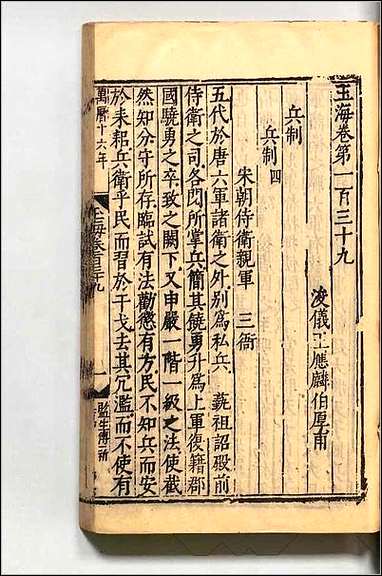 玉海卷第一百三十九
浚儀王應麟伯厚甫
兵制
兵制四
宋朝侍衛親軍 三衙
五代於唐六軍諸衛之外別為私兵 藝祖詔殿前
侍衛之司各閱所掌兵簡其饒勇升為上軍復籍郡
國驍勇之卒致之闕下又申嚴一階一級之法使截
然知分守所存臨試有法勸懲有方民不知兵而安
於耒耜兵衛乎民而習於干戈去其冗濫而不使有
萬曆十六年
玉海卷百三十九
一
監生傅